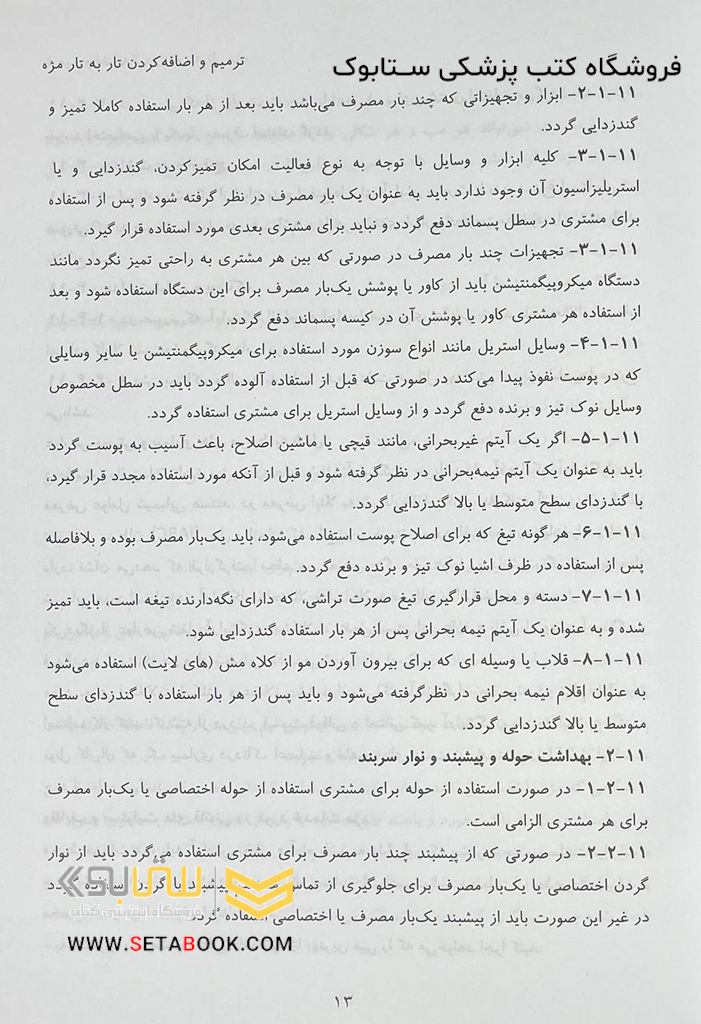 ترمیم و اضافه‌کردن تار به تار مژه
فروشگاه کتب پزشکی ستابوک
۱۱-۱-۲- ابزار و تجهیزاتی که چند بار مصرف می‌باشد باید بعد از هر بار استفاده کاملا تمیز و
گندزدایی گردد.
۱۱-۱-۳- کلیه ابزار و وسایل با توجه به نوع فعالیت امکان تمیزکردن، گندزدایی و یا
استریلیزاسیون آن وجود ندارد باید به عنوان یک بار مصرف در نظر گرفته شود و پس از استفاده
برای مشتری در سطل پسماند دفع گردد و نباید برای مشتری بعدی مورد استفاده قرار گیرد.
۱۱-۱-۳- تجهیزات چند بار مصرف در صورتی که بین هر مشتری به راحتی تمیز نگردد مانند
دستگاه میکروپیگمنتیشن باید از کاور یا پوشش یک‌بار مصرف برای این دستگاه استفاده شود و بعد
از استفاده هر مشتری کاور یا پوشش آن در کیسه پسماند دفع گردد.
۱۱-۱-۴- وسایل استریل مانند انواع سوزن مورد استفاده برای میکروپیگمنتیشن یا سایر وسایلی
که در پوست نفوذ پیدا می‌کند در صورتی که قبل از استفاده آلوده گردد باید در سطل مخصوص
وسایل نوک تیز و برنده دفع گردد و از وسایل استریل برای مشتری استفاده گردد.
۱۱-۱-۵- اگر یک آیتم غیربحرانی، مانند قیچی یا ماشین اصلاح، باعث آسیب به پوست گردد
باید به عنوان یک آیتم نیمه‌بحرانی در نظر گرفته شود و قبل از آنکه مورد استفاده مجدد قرار گیرد،
با گندزدای سطح متوسط یا بالا گندزدایی گردد.
۱۱-۱-۶- هر گونه تیغ که برای اصلاح پوست استفاده می‌شود، باید یک‌بار مصرف بوده و بلافاصله
پس از استفاده در ظرف اشیا نوک تیز و برنده دفع گردد.
۱۱-۱-۷- دسته و محل قرارگیری تیغ صورت تراشی، که دارای نگه‌دارنده تیغه است، باید تمیز
شده و به عنوان یک آیتم نیمه بحرانی پس از هر بار استفاده گندزدایی شود.
۱۱-۱-۸- قلاب یا وسیله ای که برای بیرون آوردن مو از کلاه مش (های لایت) استفاده می‌شود
به عنوان اقلام نیمه بحرانی در نظرگرفته می‌شود و باید پس از هر بار استفاده با گندزدای سطح
متوسط یا بالا گندزدایی گردد.
۱۱-۲- بهداشت حوله و پیشبند و نوار سربند
۱۱-۲-۱- در صورت استفاده از حوله برای مشتری استفاده از حوله اختصاصی یا یک‌بار مصرف
برای هر مشتری الزامی است.
۱۱-۲-۲- در صورتی که از پیشبند چند بار مصرف برای مشتری استفاده می‌گردد باید از نوار
گردن اختصاصی یا یک‌بار مصرف برای جلوگیری از تماس پیشبند با گردن استفاده گردد
در غیر این صورت باید از پیشبند یک‌بار مصرف یا اختصاصی استفاده گردد.
ستابوک
فروشگاه اینترنتی کتاب
WWW.SETABOOK.COM
۱۳